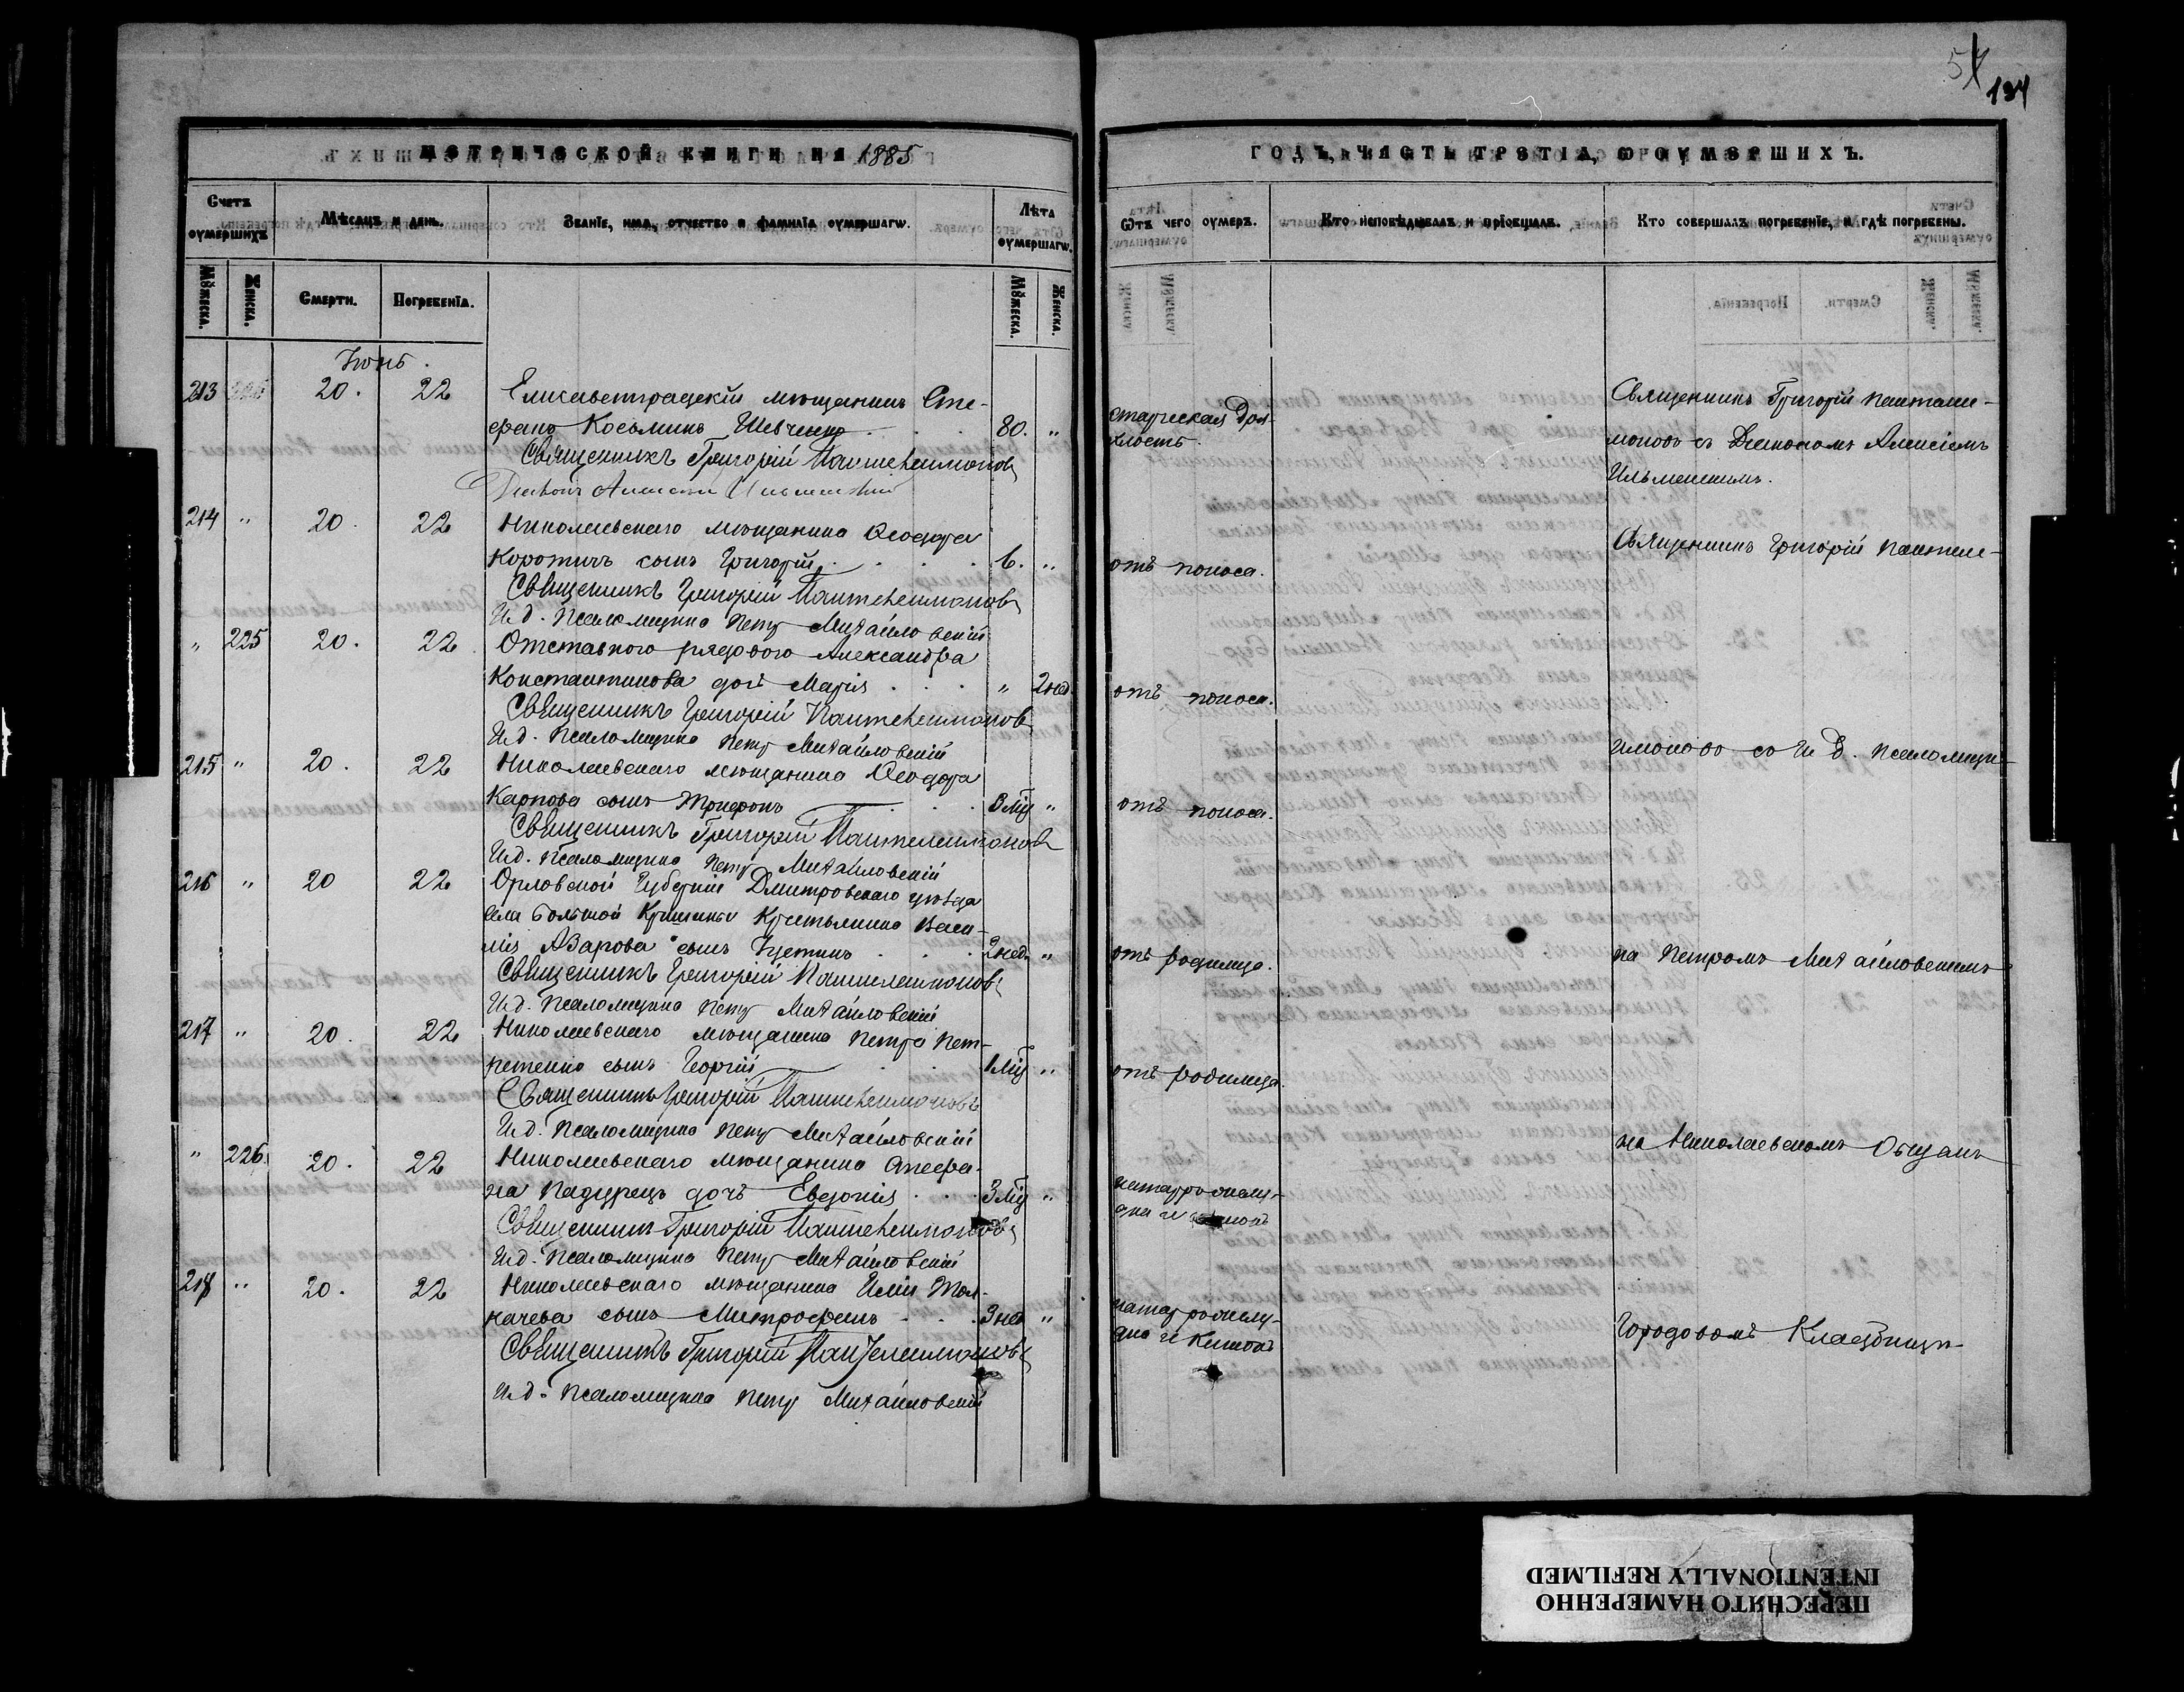 54
134
МЕТРИЧЕСКОЙ КНИГИ НА 1885
ГОДЪ, ЧАСТЬ ТРЕТІА, Ѡ ОУМЕРШИХЪ.
Счетъ оумершихъ
Мѣсацъ и день.
Званїе, има, отчество и фамилїа оумершагѡ.
Лѣта оумершагѡ.
Ѿтъ чего оумеръ.
Кто исповѣдывалъ и прїобщалъ.
Кто совершалъ погребенїе, и гдѣ погребены.
Мꙋжеска.
Женска.
Смерти.
Погребенїа.
Мꙋжеска.
Женска.
Іюнь.
213 20. 22 Елисаветградскій мѣщанинъ Сте-
фанъ Косьминъ Шевченко 80. "
Священникъ Григорій Пантелеимоновъ
Діаконъ Алексій Ильменскій
старческая дря-
хлость.
Священникъ Григорій Пантелеи-
моновъ съ Діакономъ Алексіемъ
Ильменскимъ.
214 " 20. 22 Николаевскаго мѣщанина Ѳеодора
Коротичъ сынъ Григорій 6. "
Священникъ Григорій Пантелеимоновъ
И. д. Псаломщика Петръ Михайловскій
отъ поноса.
Священникъ Григорій Пантеле-
" 225 20. 22 Отставного рядового Александра
Константинова дочь Марія " 2 нед.
Священникъ Григорій Пантелеимоновъ
И. д. Псаломщика Петръ Михайловскій
отъ поноса.
215 " 20. 22 Николаевскаго мѣщанина Ѳеодора
Карпова сынъ Трифонъ "
Священникъ Григорій Пантелеимоновъ
И. д. Псаломщика Петръ Михайловскій
отъ поноса.
имоновъ со И. д. Псаломщи-
216 " 20 22 Орловской Губерніи Дмитровскаго уѣзда
села Большой крестьянина Васи-
лія Азарова сынъ Іустинъ 2 нед. "
Священникъ Григорій Пантелеимоновъ
И. д. Псаломщика Петръ Михайловскій
отъ родимца.
ка Петромъ Михайловскимъ
217 " 20. 22 Николаевскаго мѣщанина Петра Пет-
ренко сынъ Георгій 1 мѣц "
Священникъ Григорій Пантелеимоновъ
И. д. Псаломщика Петръ Михайловскій
отъ родимца.
" 226. 20. 22 Николаевскаго мѣщанина Стефа-
на Падурецъ дочь Евдокія 3 мѣц "
Священникъ Григорій Пантелеимоновъ
И. д. Псаломщика Петръ Михайловскій
катарр желу-
дка и кишокъ
на Николаевскомъ Общемъ
218 " 20. 22 Николаевскаго мѣщанина Иліи Тол-
качева сынъ Митрофанъ 3 нед "
Священникъ Григорій Пантелеимоновъ
И. д. Псаломщика Петръ Михайловскій
катарръ желу-
дка и кишокъ
Городовомъ Кладбищѣ
ПЕРЕСНЯТО НАМЕРЕННО
INTENTIONALLY REFILMED